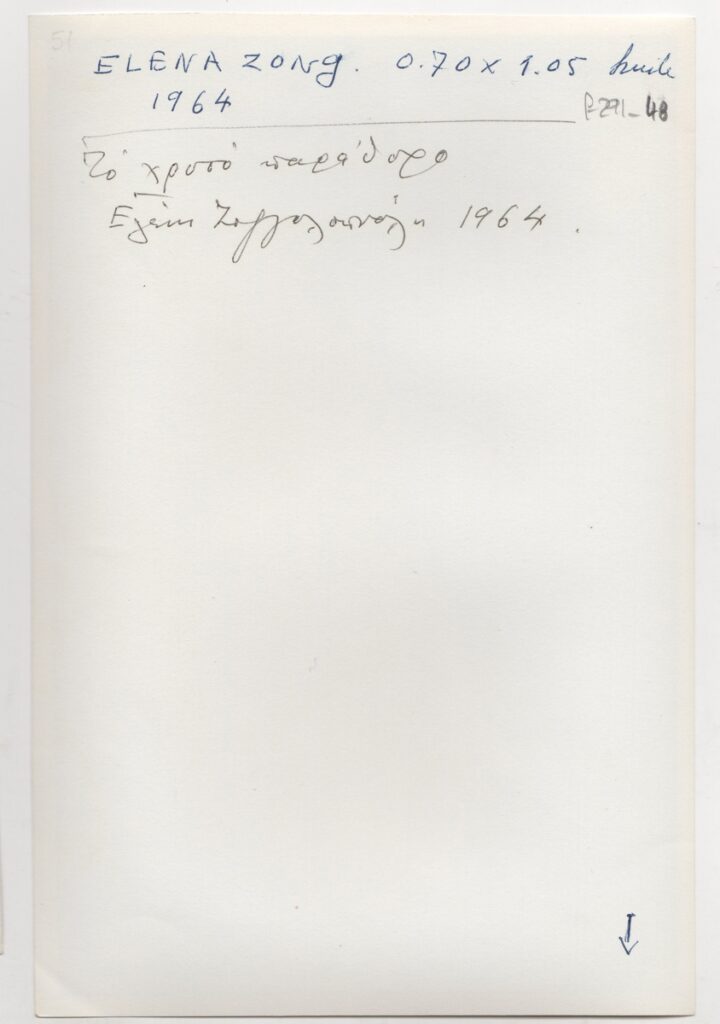 51
ELENA ZONG. 0.70 x 1.05 huile
1964
f-291-48
Τό χρυσό παράθυρο
Ελένη Ζογγολοπούλου 1964.